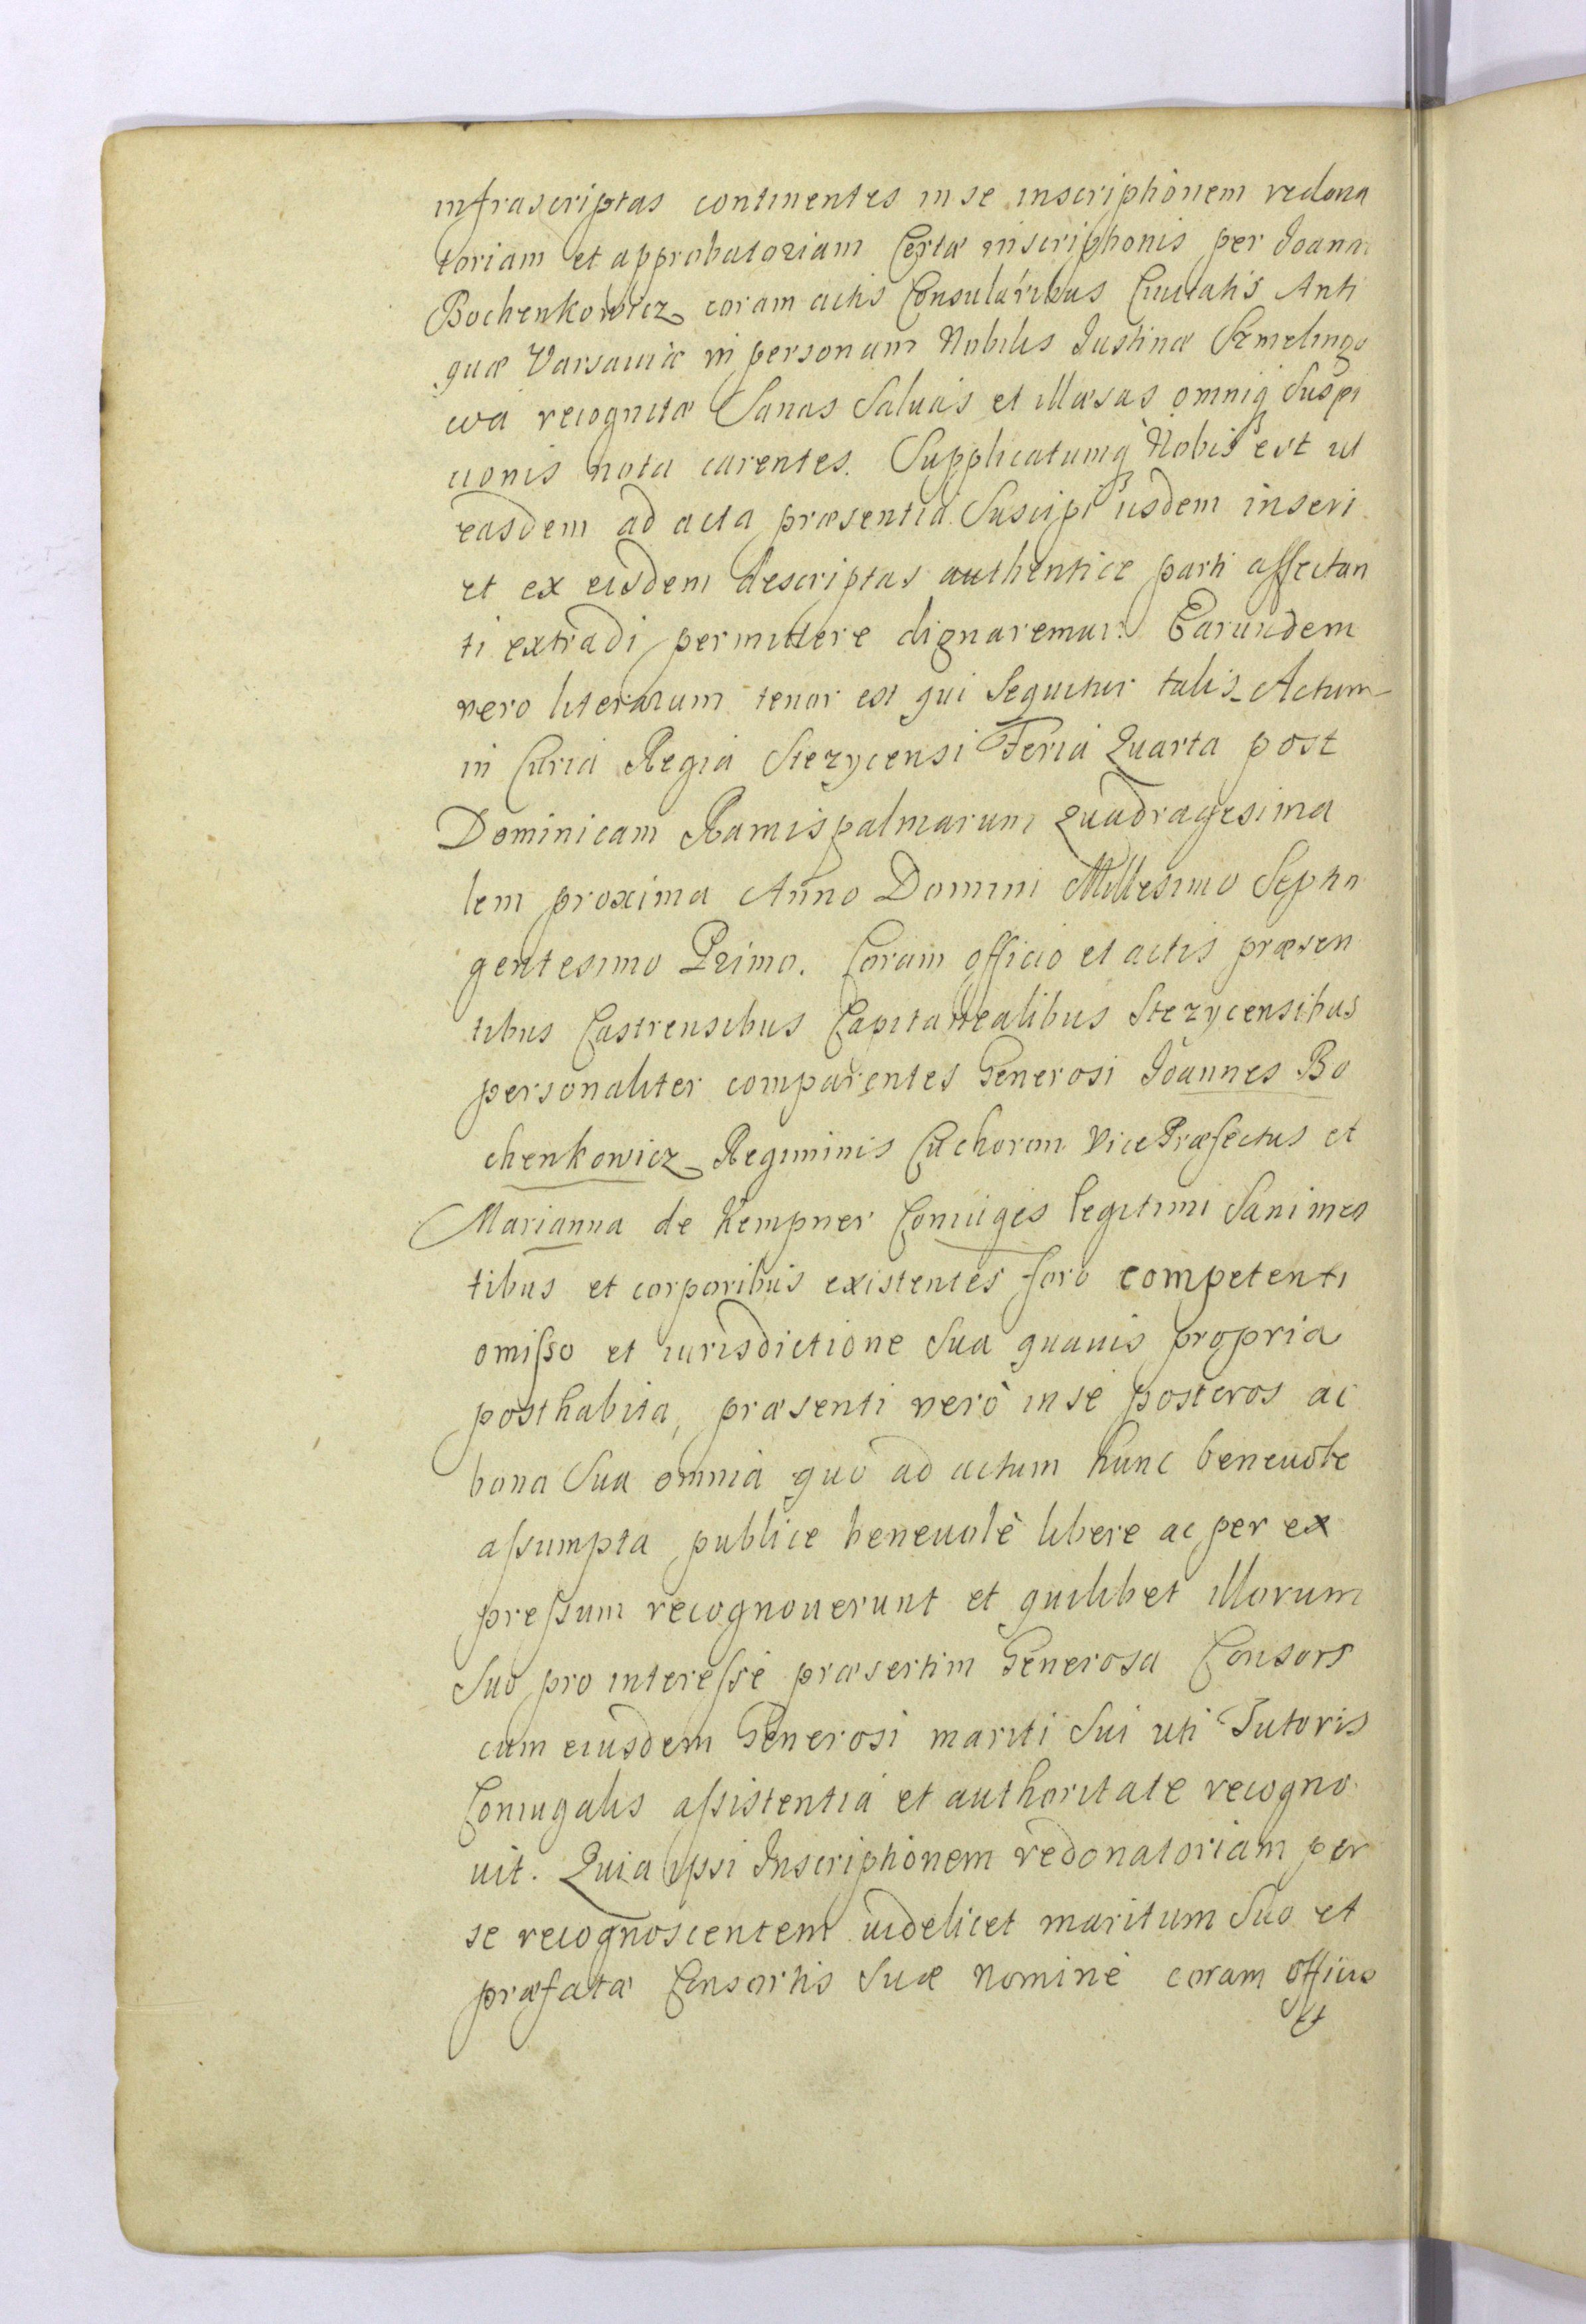 infrascriptas continentes in se inscriptionem redona
toriam et approbatoriam Certæ inscriptionis per Joanne
Bochenkowicz coram actis Consularibus Ciuitatis Anti
quæ Varsauiæ in personam Nobilis Justinæ Szmelingo
wa recognitæ Sanas Saluas et illæsas omniq Suspi
cionis nota carentes. Supplicatumq Nobis est ut
easdem ad acta præsentia Suscipi iisdem inseri
et ex eisdem descriptas authentice parti affectan
ti extradi permittere dignaremur. Earundem
vero literarum tenor est qui Sequitur talis Actum
in Curia Regia Stezycensi Feria Quarta post
Dominicam Ramispalmarum Quadragesima
lem proxima Anno Domini Millesimo Septin
gentesimo Primo. Coram officio et actis præsen
tibus Castrensibus Capitanealibus Stezycensibus
personaliter comparentes Generosi Joannes Bo
chenkowicz Regiminis Vice Præfectus et
Marianna de Kempner Coniuges legitimi Sani men
tibus et corporibus existentes foro competenti
omisso et iurisdictione Sua quauis propria
posthabita, præsenti verò in se posteros ac
bona Sua omnia quo ad actum hunc beneuole
assumpta publice beneuolè libere ac per ex
pressum recognouerunt et quilibet illorum
Suo pro interesse præsertim Generosa Consors
cum eiusdem Generosi mariti Sui uti Tutoris
Coniugalis assistentia et authoritate recogno
uit. Quia ipsi Inscriptionem redonatoriam per
se recognoscentem videlicet maritum Suo et
præfatæ Consortis Suæ nomine coram officio
et